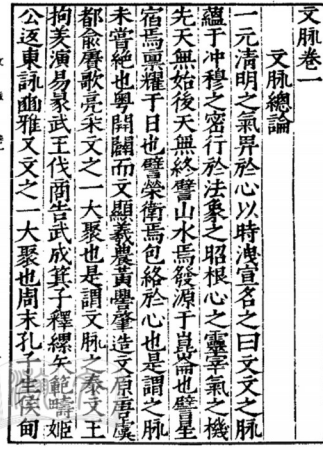 文脉卷一
文脉總論
一元清明之氣畀於心以時洩宣名之曰文文之脉
蘊于冲穆之密行於法象之昭根心之靈宰氣之機
先天無始後天無終譬山水焉發源于崑崙也譬星
宿焉禀耀于日也譬榮衛焉包絡於心也是謂之脉
未嘗絶也粤開闢而文顯羲農黃嚳肇造文原唐虞
都俞賡歌亮采文之一大聚也是謂文脉之泰文王
拘羑演易彖武王伐商告武成箕子釋縲矢範疇姬
公迒東詠豳雅又文之一大聚也周末孔子生侯甸